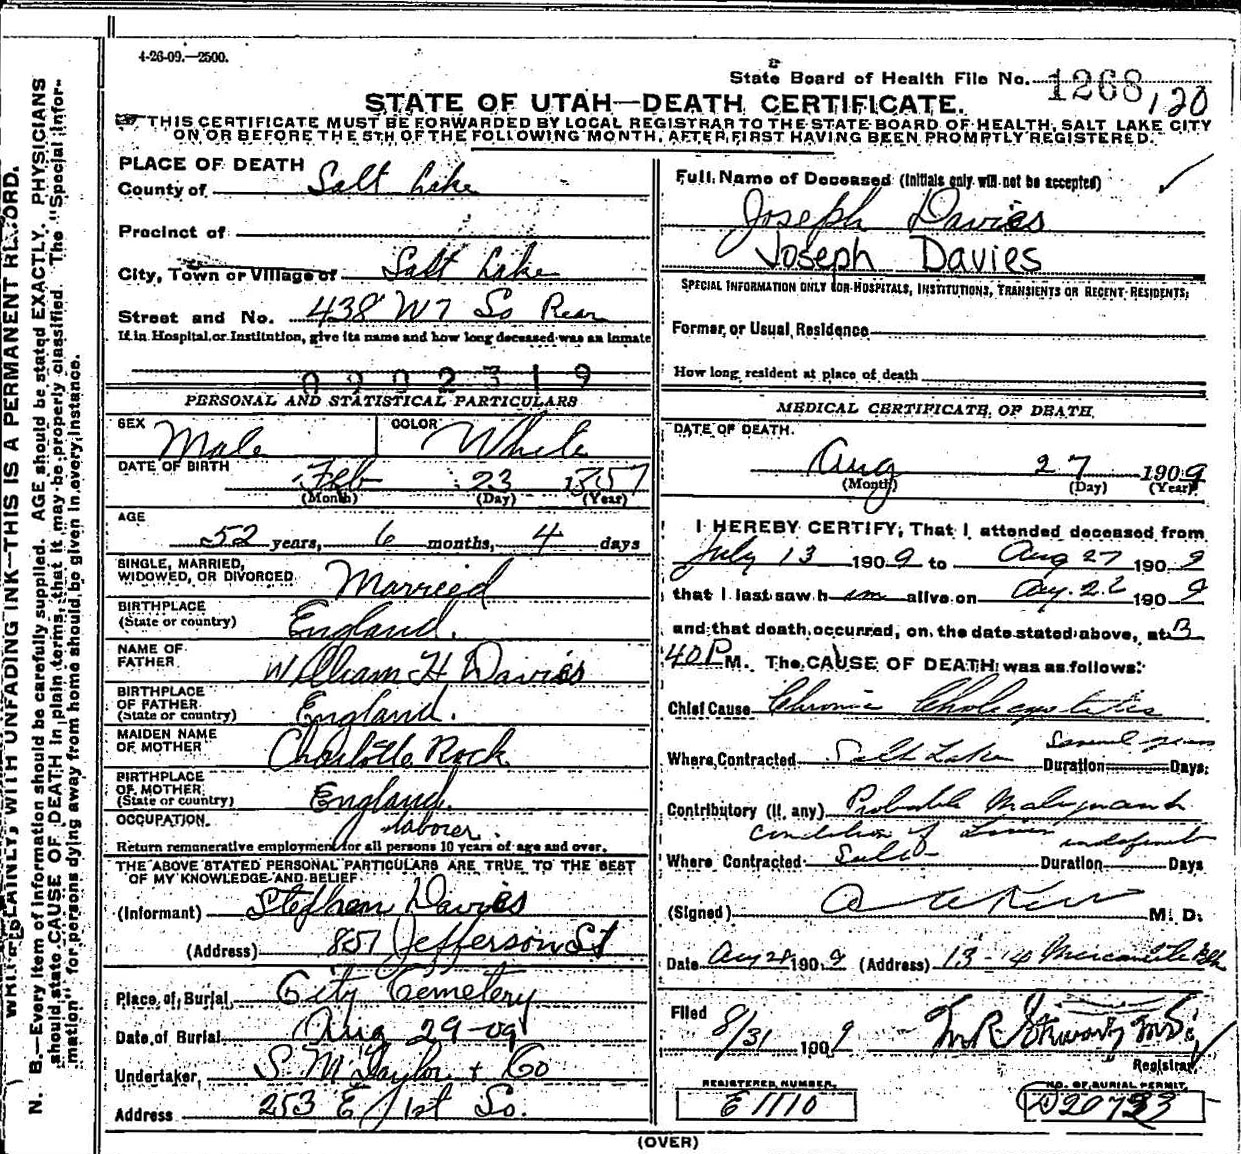 4-26-09.—2500.
State Board of Health File No. 1268,120
STATE OF UTAH—DEATH CERTIFICATE.
THIS CERTIFICATE MUST BE FORWARDED BY LOCAL REGISTRAR TO THE STATE BOARD OF HEALTH, SALT LAKE CITY
ON OR BEFORE THE 5TH OF THE FOLLOWING MONTH, AFTER FIRST HAVING BEEN PROMPTLY REGISTERED.
WRITE PLAINLY, WITH UNFADING INK—THIS IS A PERMANENT RECORD.
N. B.—Every item of information should be carefully supplied. AGE should be stated EXACTLY. PHYSICIANS
should state CAUSE OF DEATH in plain terms, that it may be properly classified. The "Special Infor-
mation" for persons dying away from home should be given in every instance.
PLACE OF DEATH
County of Salt Lake
Precinct of
City, Town or Village of Salt Lake
Street and No. 438 W 7 So Rear
If in Hospital or Institution, give its name and how long deceased was an inmate
0902319
PERSONAL AND STATISTICAL PARTICULARS
SEX Male COLOR White
DATE OF BIRTH Feb 23 1857
(Month) (Day) (Year)
AGE
52 years, 6 months, 4 days
SINGLE, MARRIED,
WIDOWED, OR DIVORCED Married
BIRTHPLACE
(State or country) England.
NAME OF
FATHER William H Davies
BIRTHPLACE
OF FATHER
(State or country) England.
MAIDEN NAME
OF MOTHER Charlotte Rock
BIRTHPLACE
OF MOTHER
(State or country) England.
OCCUPATION laborer.
Return remunerative employment for all persons 10 years of age and over.
THE ABOVE STATED PERSONAL PARTICULARS ARE TRUE TO THE BEST
OF MY KNOWLEDGE AND BELIEF
(Informant) Stephen Davies
(Address) 857 Jefferson St
Place of Burial City Cemetery
Date of Burial Aug 29-09
Undertaker S. M Taylor + Co
Address 253 E 1st So.
Full Name of Deceased (Initials only will not be accepted)
Joseph Davies
Joseph Davies
SPECIAL INFORMATION ONLY FOR HOSPITALS, INSTITUTIONS, TRANSIENTS OR RECENT RESIDENTS:
Former or Usual Residence
How long resident at place of death
MEDICAL CERTIFICATE OF DEATH
DATE OF DEATH.
Aug 27 1909
(Month) (Day) (Year)
I HEREBY CERTIFY, That I attended deceased from
July 13 1909 to Aug 27 1909
that I last saw him alive on Aug. 26 1909
and that death occurred, on the date stated above, at 3
40 P M. The CAUSE OF DEATH was as follows:
Chief Cause Chronic Cholecystitis
Where Contracted Salt Lake Duration Several years Days
Contributory (if any) Probable Malignant
condition of Liver indefinite
Where Contracted Duration Days
(Signed) M. D.
Date Aug 28 1909 (Address) 13-14 Mercantile Blk
Filed 8/31 1909
Registrar
REGISTERED NUMBER.
E 1110
NO. OF BURIAL PERMIT.
(OVER)